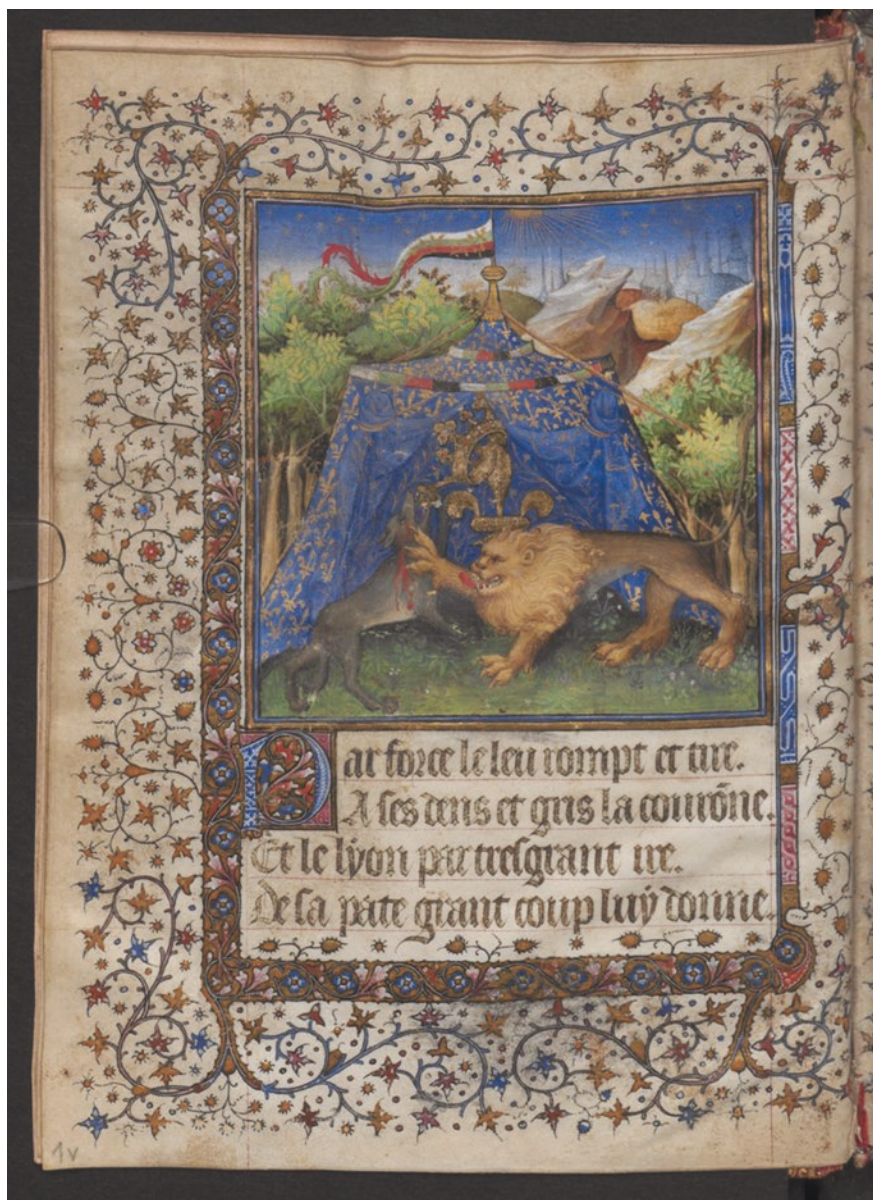 Par force le leu rompt et tire.
A ses dens et gris la courōne.
Et le lyon par tresgrant ire.
De sa pate grant coup luy donne.
1v